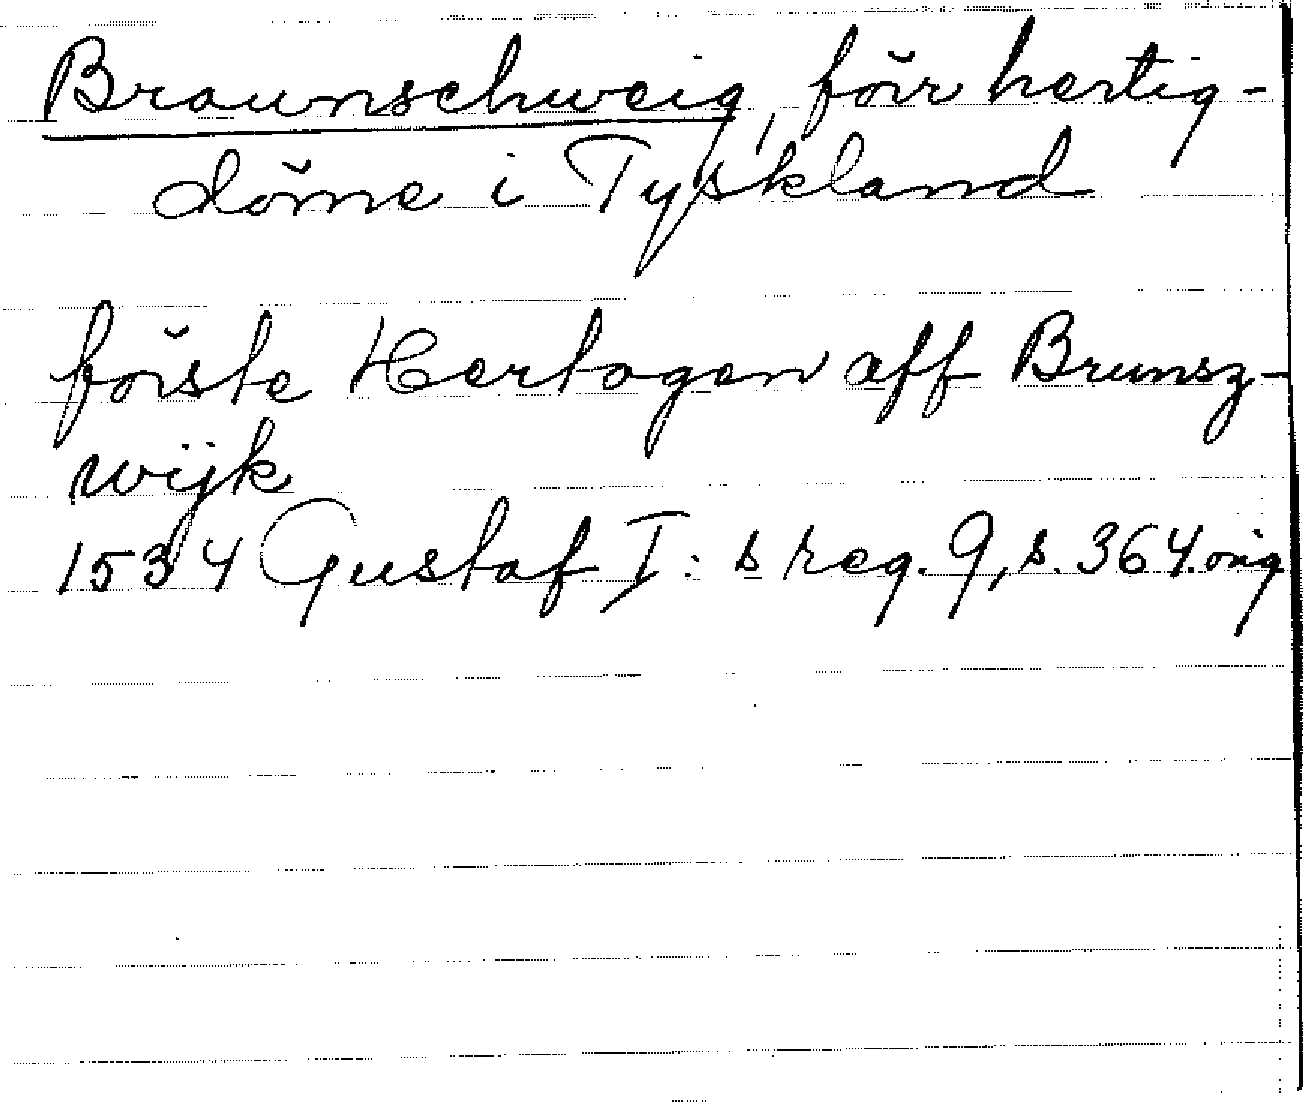 Braunschweig, förr hertig-
döme i Tyskland
förste Hertogen aff Brunsz-
wijk
1534 Gustaf I:s reg. 9, s. 364. orig